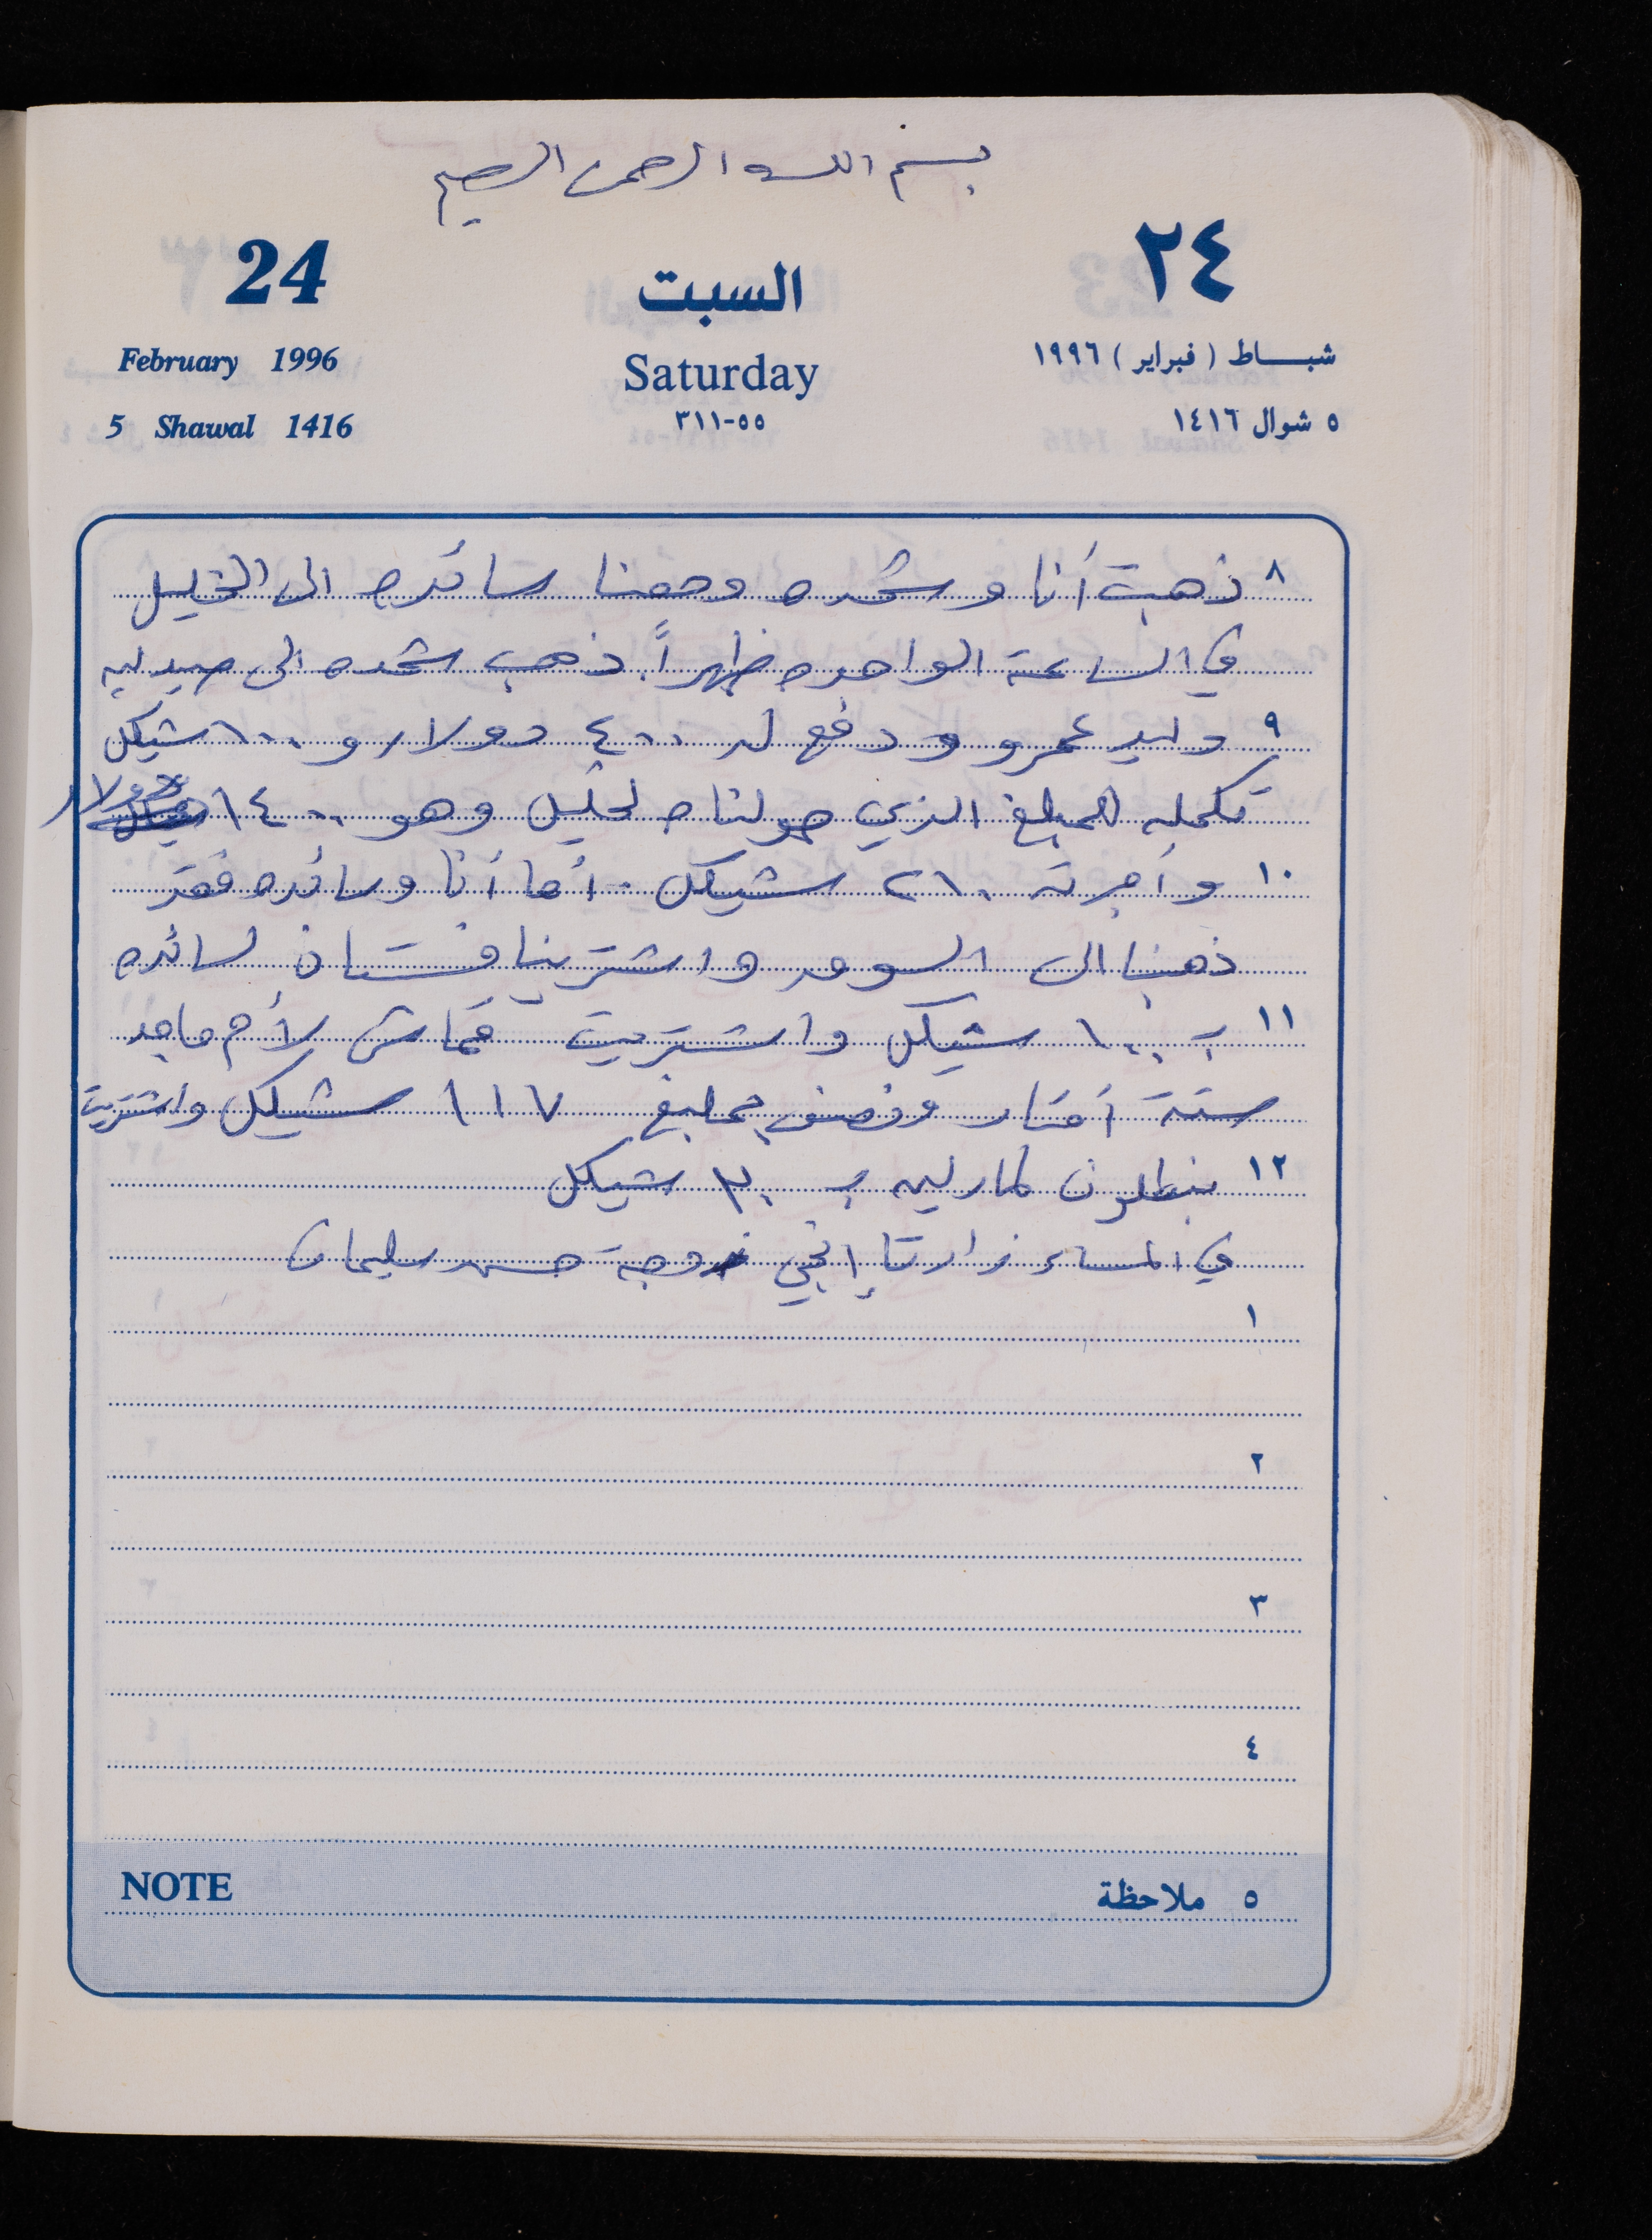 بسم الله الرحمن الرحيم
24 السبت ٢٤
February 1996 Saturday شباط (فبراير) ١٩٩٦
5 Shawal 1416 ٥٥-٣١١ ٥ شوال ١٤١٦
٨ ذهبت أنا وشحده ومعنا سائده الى الخليل
في الساعة الواحده ظهراً. ذهب شحده الى صيدليه
٩ وليد عمرو ودفع له ٤٠٠ دولار و ١٠٠ شيكل
تكمله للمبلغ الذي حولناه لخليل وهو ١٤٠٠ دولار
١٠ وأجرته ٢١٠ شيكل. أما أنا وسائده فقد
ذهبنا الى السوق واشترينا فستان لسائده
١١ بـ ١٠٠ شيكل واشتريت قماش لأم ماجد
ستة أمتار ونصف بمبلغ ١١٧ شيكل واشتريت
١٢ بنطلون لمارليه بـ ٣٠ شيكل
في المساء زارتنا زوجة حسن سليمان
١
٢
٣
٤
NOTE ٥ ملاحظة